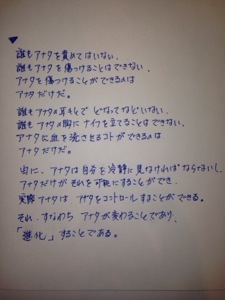 誰もアナタを責めてはいない。
誰もアナタを傷つけることはできない。
アナタを傷つけることができるのは
アナタだけだ。
誰もアナタの耳もとでどなってなどいない。
誰もアナタの胸にナイフを立てることはできない
アナタに血を流させるコトができるのは
アナタだけだ。
故に、アナタは自分を冷静に見なければならないし、
アナタだけがそれを可能にすることができ、
実際アナタは アナタをコントロールすることができる。
それ、すなわち アナタが変わることであり、
「進化」することである。